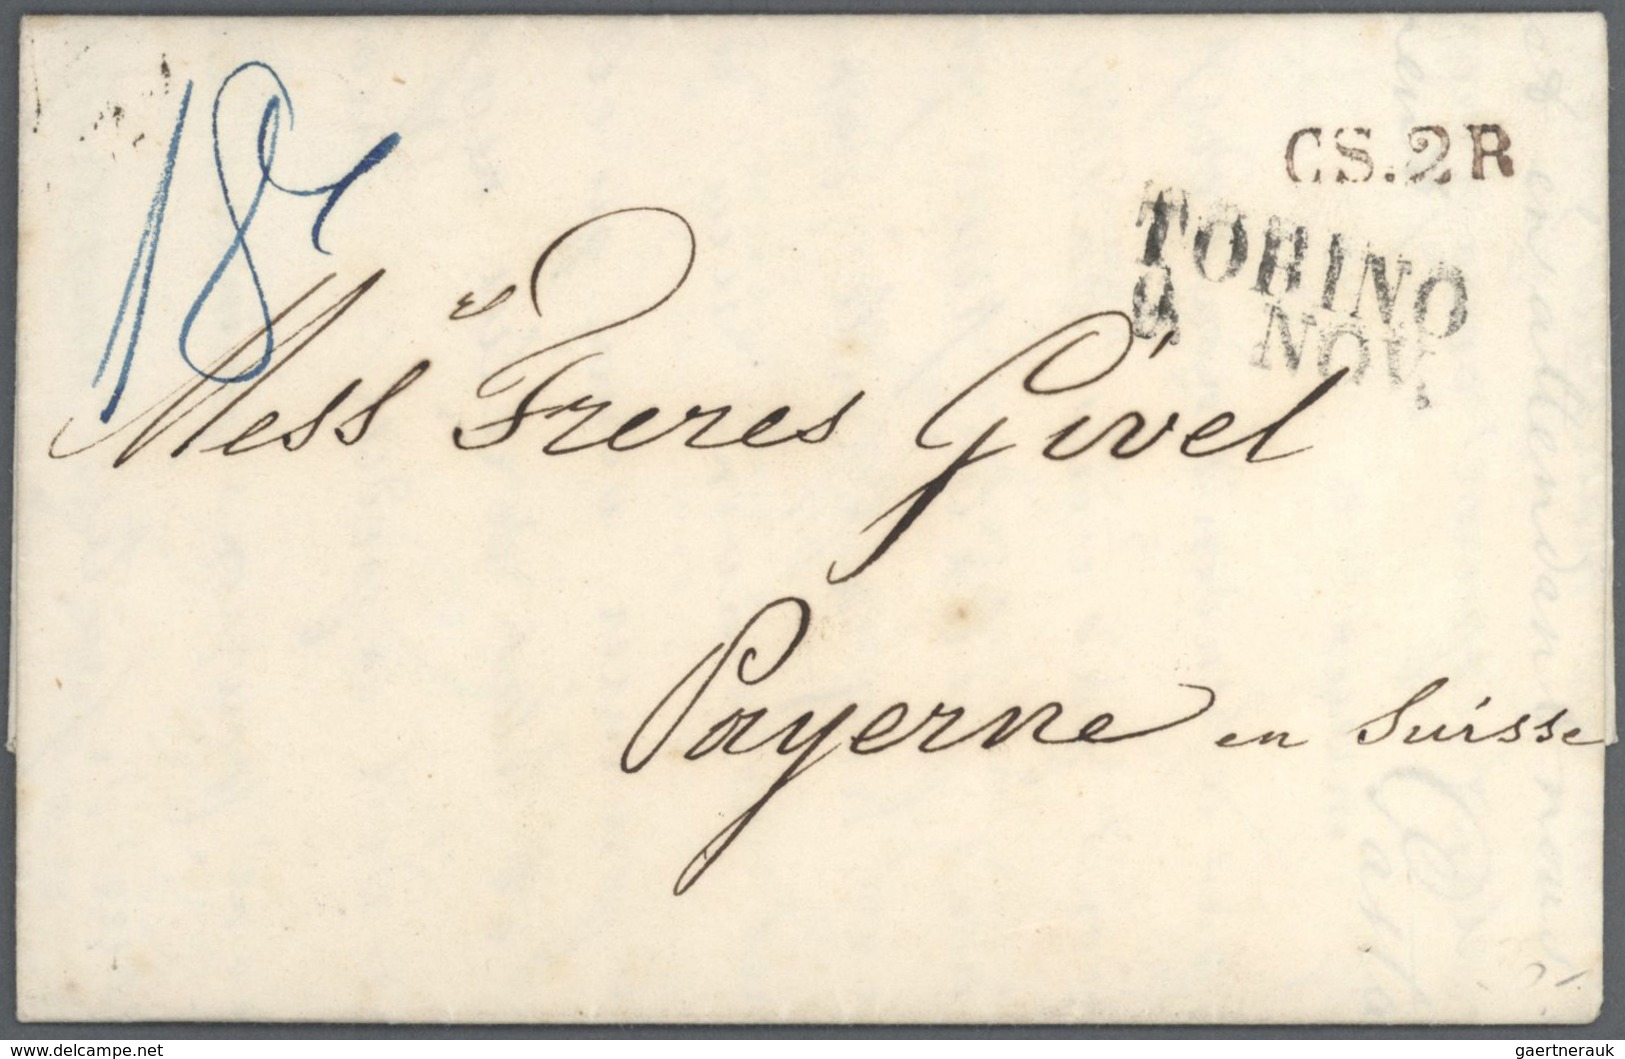 18
CS.2R
TORINO
9 NOV.
Mess.rs Freres Givel
Payerne en Suisse
www.delcampe.net
gaertnerauk